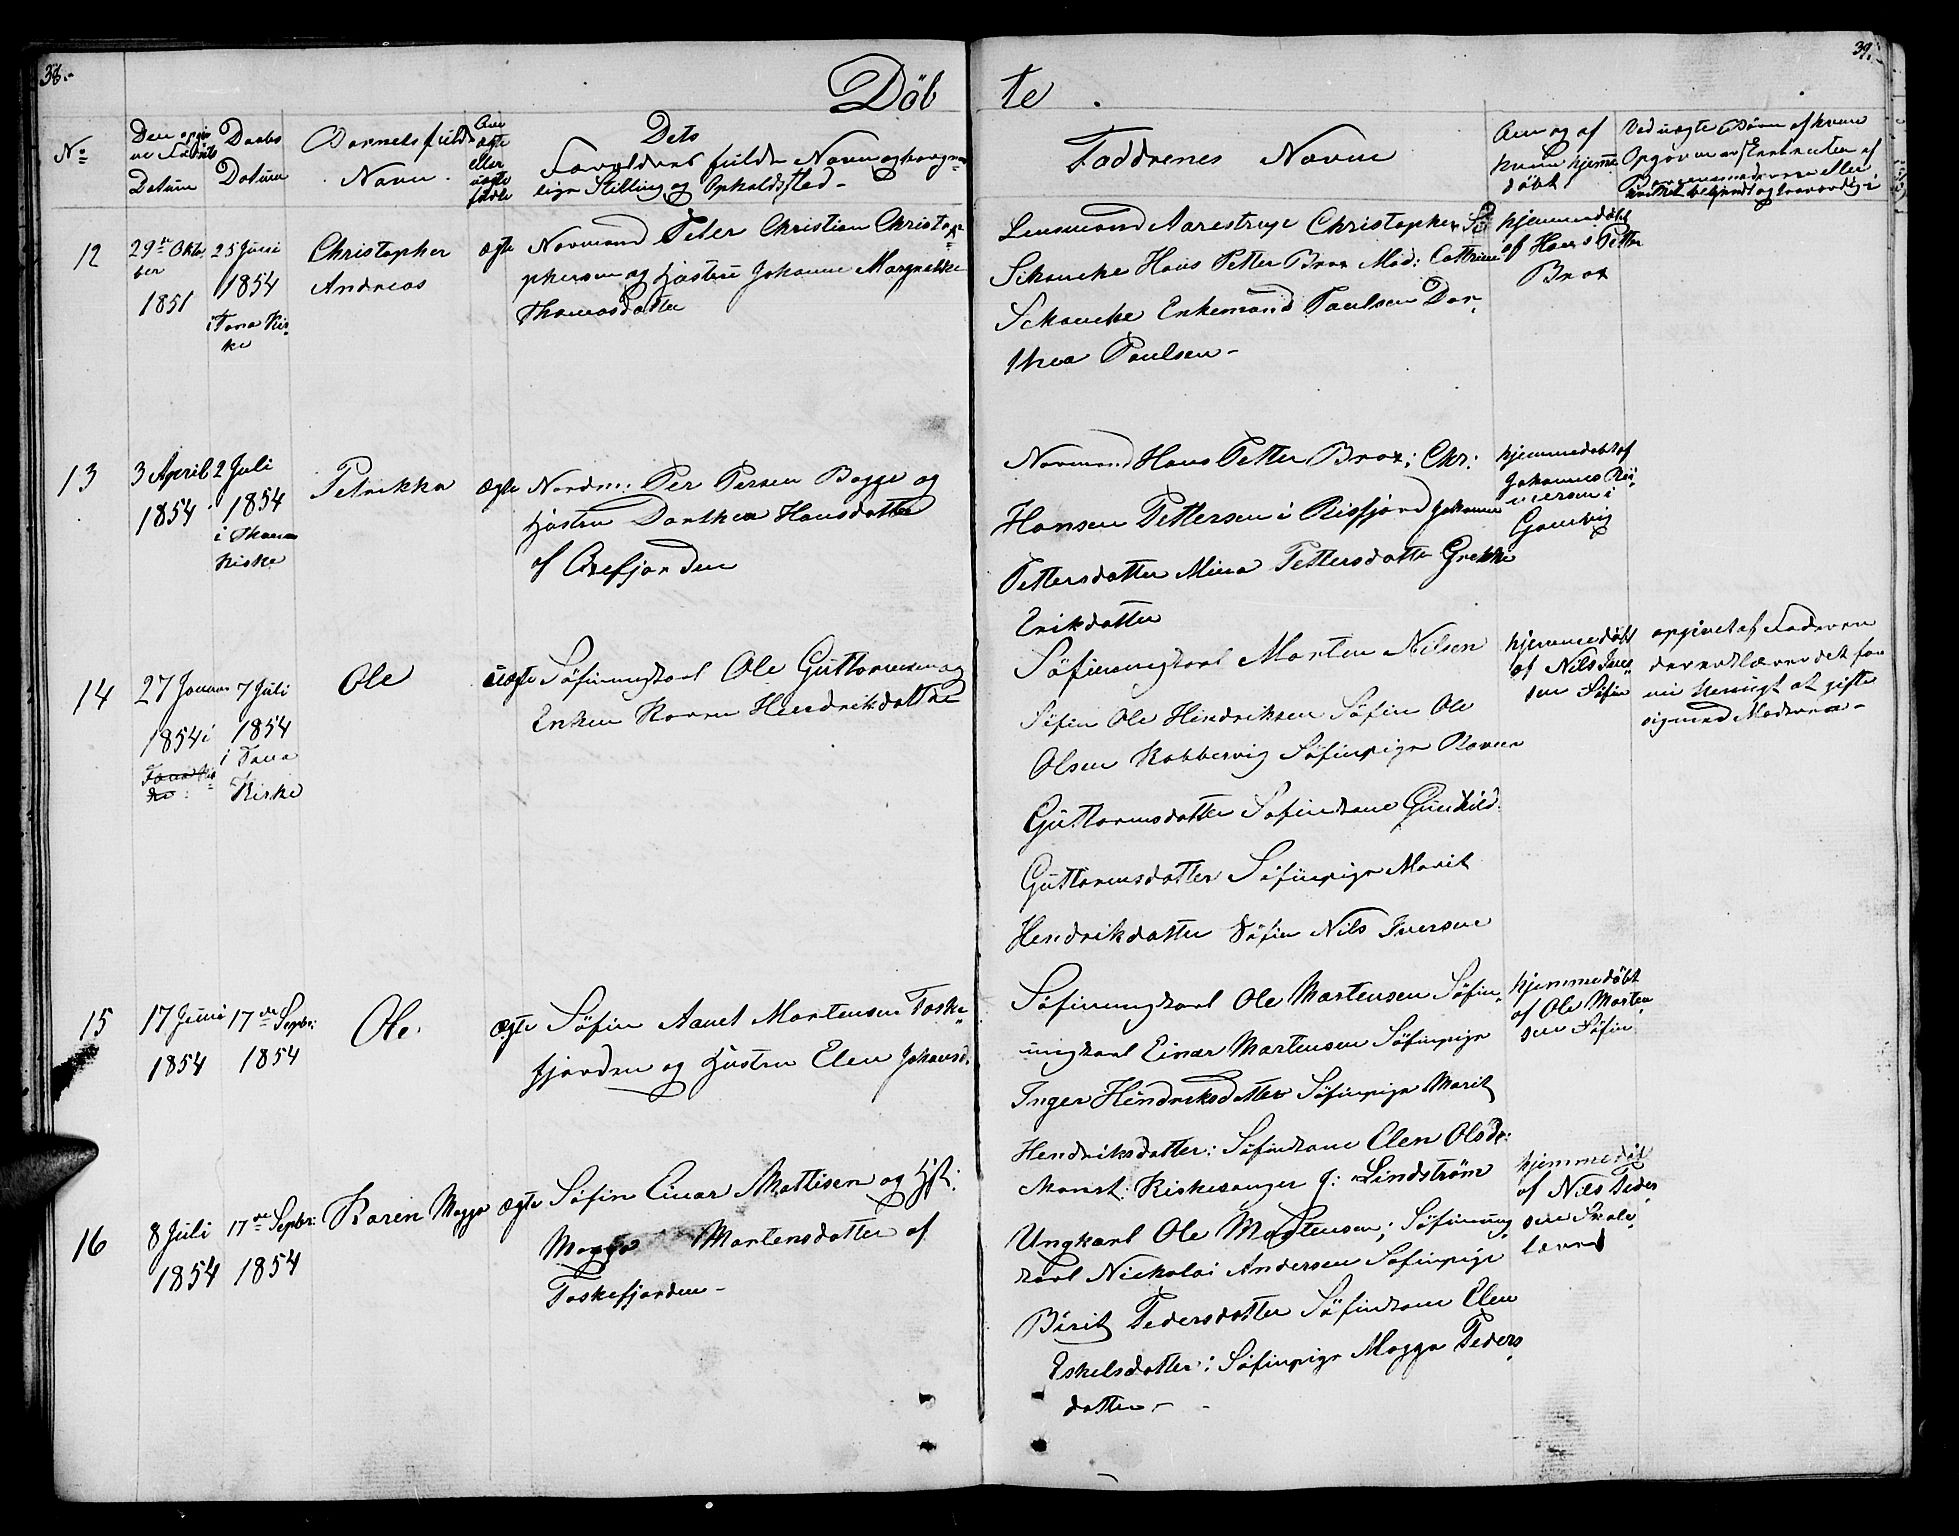 38.
39.
Döb te.
No
Den opgiv
ne Fødsels
Datum
Daabs
Datum
Barnets fulde
Navn.
Om
ægte
eller
uægte
født
Dets
Forældres fulde Navn og borger
lige Stilling og Opholdsted -
Faddrenes Navne
Om og af
hvem hjemme
døbt
Ved uægte Børn af hvem
12
29de Okto
ber
1851
25 Juni
1854
i Tana Kir-
ke
Christopher
Andreas
ægte
Normand Peter Christian Christop-
phersen og Hustru Johanne Margrethe
Thomasdatter
Lensmand Aarestrup Christopher
Schancke Hans Petter Brox Mad: Cathrine
Schancke Enkemand Paulsen Dor-
thea Paulsen -
hjemmedøbt
af Hans Petter
Brox
13
3 April
1854
2 Juli
1854
i Thana
Kirke
Petrikka
ægte
Nordm: Per Persen Bogge og
Hustru Dorthea Hansdatter
af
Normand Hans Petter Brox; Chr:
Hansen Pettersen i Risfjord Johanna
Pettersdatter Mina Pettersdatter Grekke
Erikdatter
hjemmedøbt af
Johannes Rei-
mersen i
Gamvig
14
27 Januar
1854 i
Tana Kir-
ke
7 Juli
1854
i Tana
Kirke
Ole
uægte
Søfinungkarl Ole Guttormsen og
Enken Karen Hendrikdatter
Søfinungkarl Morten Nilsen
Søfin Ole Hindriksen Søfin Ole
Olsen Kobbervig Søfinpige Karen
Guttormsdatter Søfinkone Gunhild
Guttormsdatter Søfinpige Marit
Hendrikdatter Søfin Nils Iversen
hjemmedøbt
af Nils Iver
sen Søfin
opgivet af Faderen
der erklærer det for
sig med Moderen -
15
17 Juni
1854
17de Septbr:
1854
Ole.
ægte
Søfin Aanet Mortensen Taske-
fjorden og Hustru Elen Johansd.
Søfinungkarl Ole Mortensen Søfin-
ungkarl Einar Mortensen Søfinpige
Inger Hindriksdatter Søfinpige Marit
Hendriksdatter: Søfinkone Elen Olsdr:
hjemmedøbt
af Ole Morten
sen Søfin
16
8 Juli
1854
17de Septbr:
1854
Karen Magga
ægte
Søfin Einar Mattisen og Hst:
Magga Mortensdatter af
Taskefjorden -
Const: Kirkesanger J: Lindstrøm
Ungkarl Ole Mortensen; Søfinung
karl Nickolai Andersen Søfinpige
Birit Pedersdatter Søfinkone Elen
Eskelsdatter: Søfinpige Magga Peders
datter -
hjemmedøbt
af Nils Peder
sen Skole-
lærer